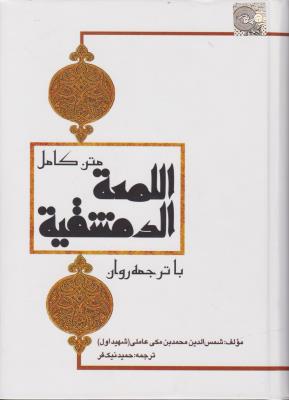 متن کامل
اللمعة
الدمشقية
با ترجمه روان
مؤلف: شمس‌الدین محمد بن مکی عاملی (شهید اول)
ترجمه: حمید نیک‌فر